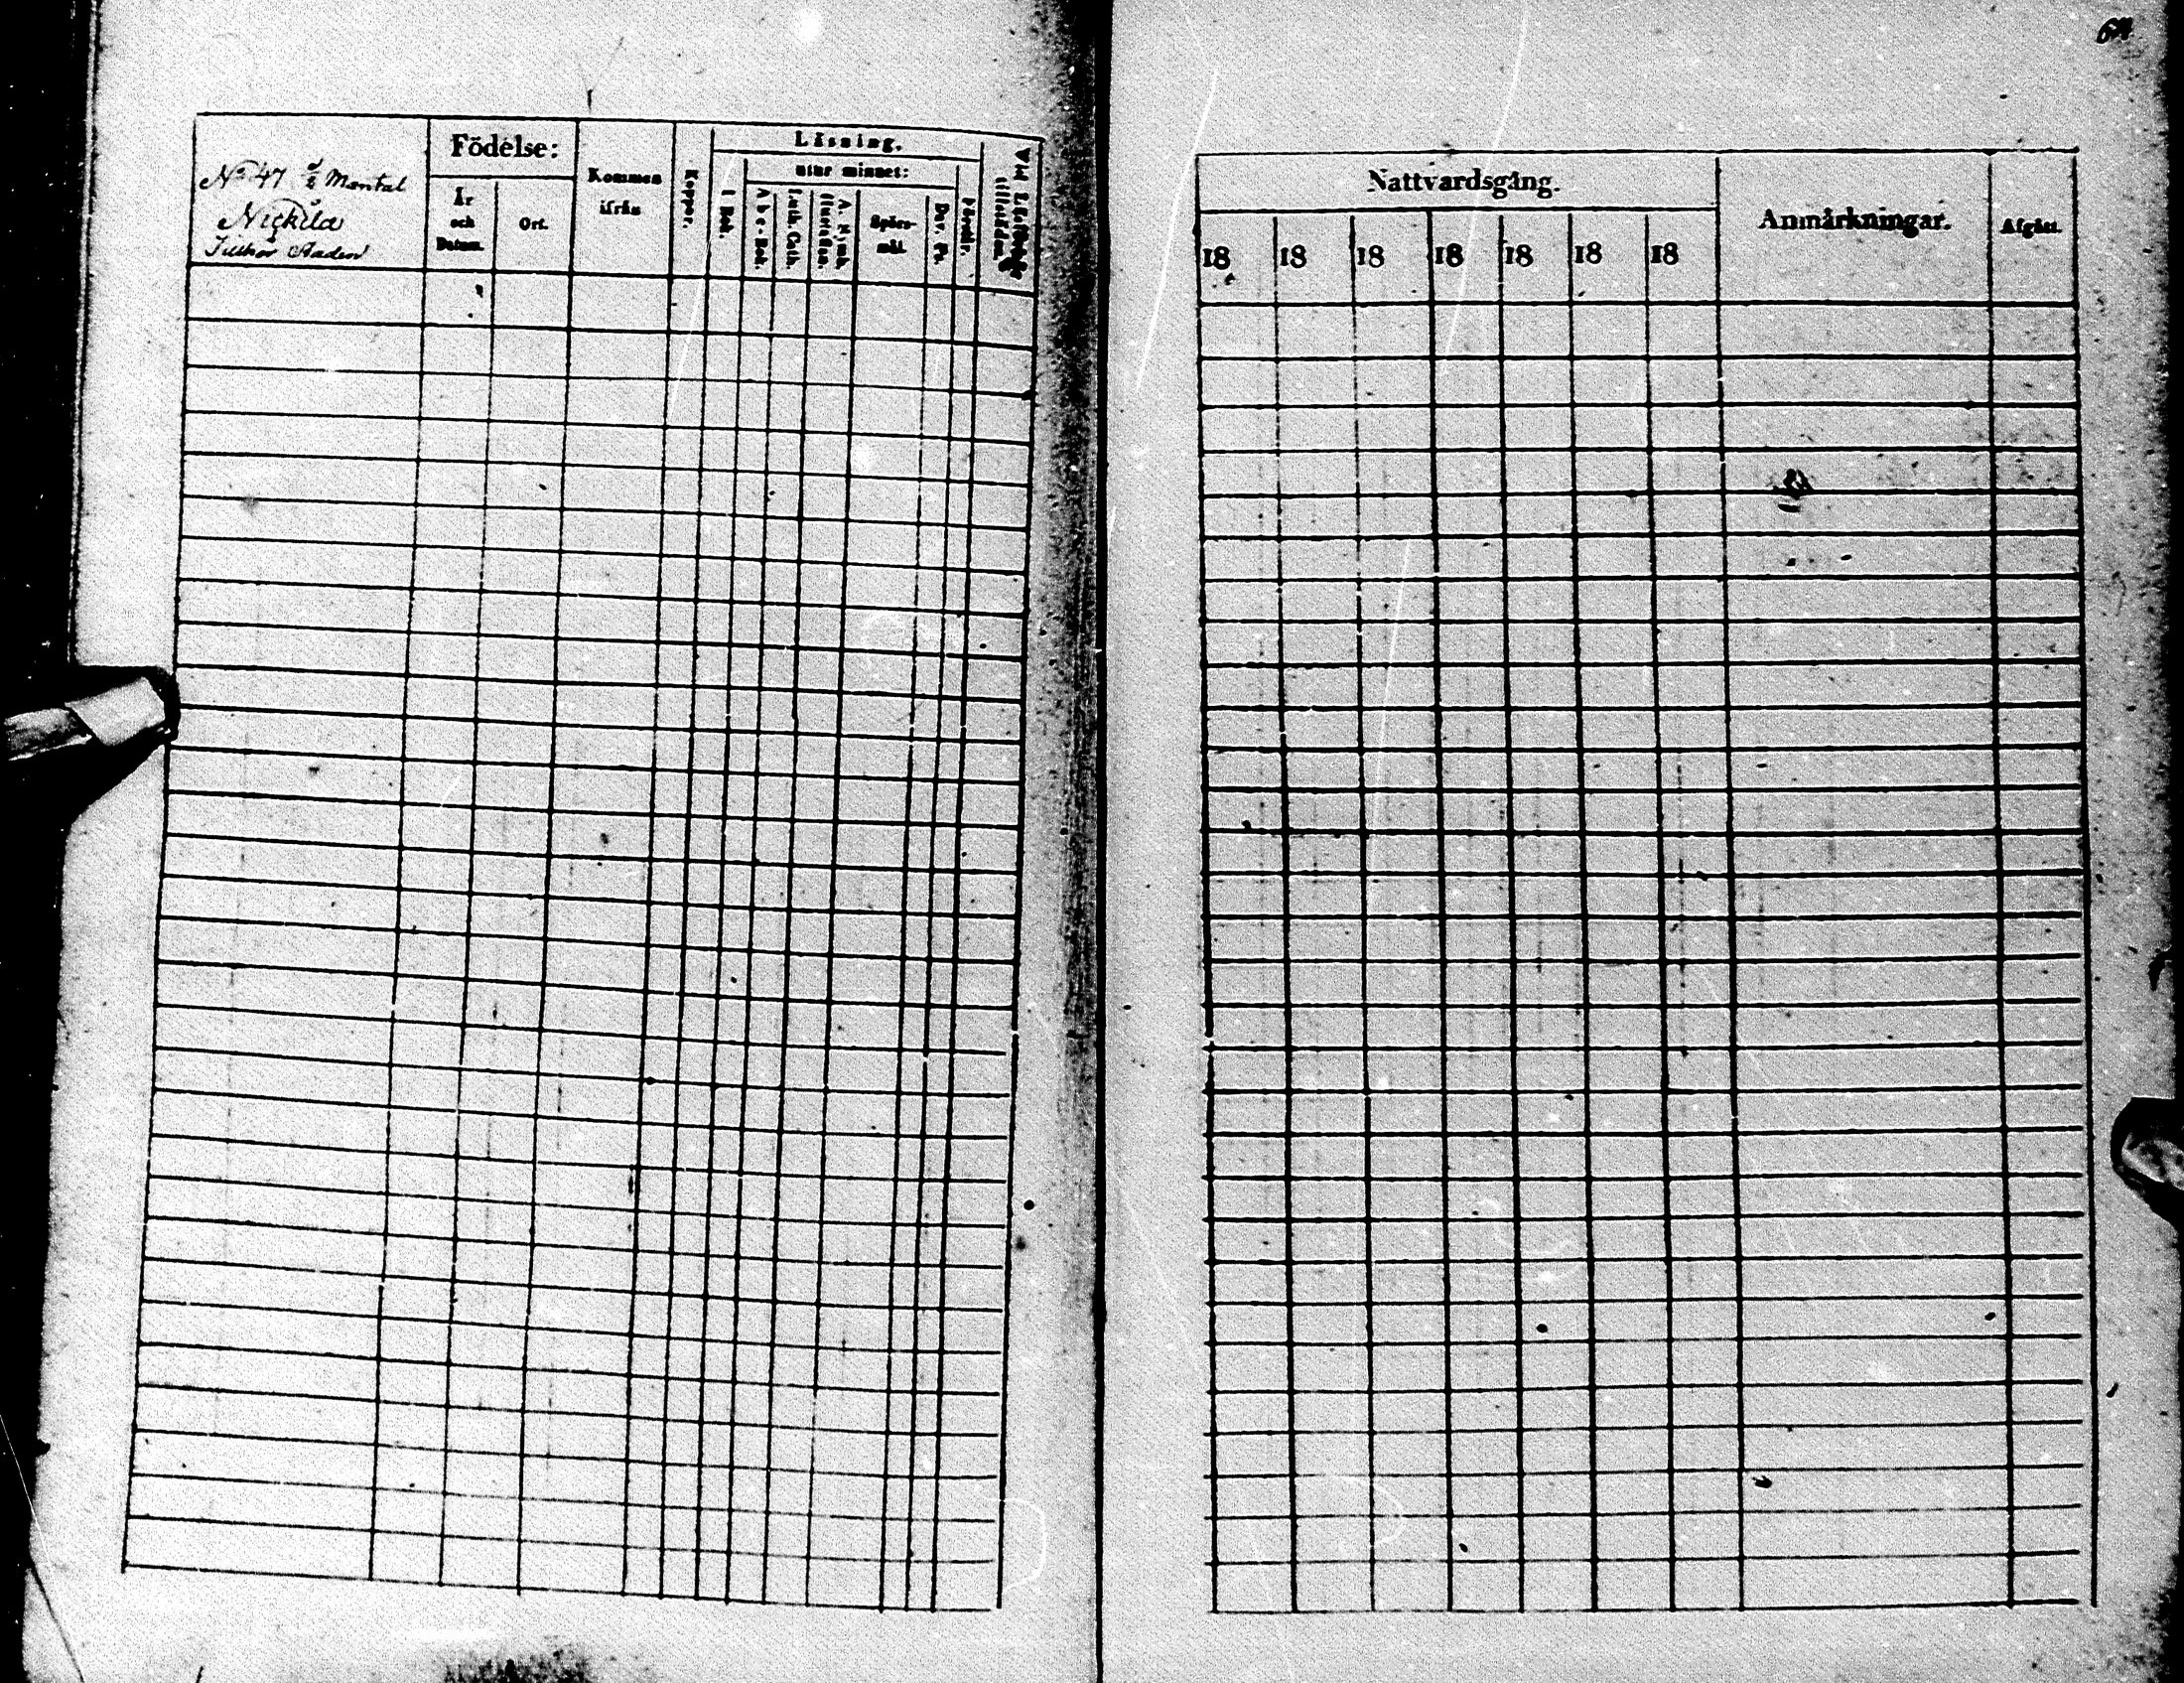 No 47 Mantal
Nickila
Födelse:
År
och
Datum.
Ort.
Kommen
ifrån
Koppor.
Läsning.
I Bok.
utur minnet:
A b c - Bok.
Luth. Cath.
A. Symb.
Hustaflan.
Spörs-
mål.
Dav. Ps.
Förstår.
Vid Läsförhör
tillstädes.
Nattvardsgång.
18 18 18 18 18 18 18
Anmärkningar.
Afgått.